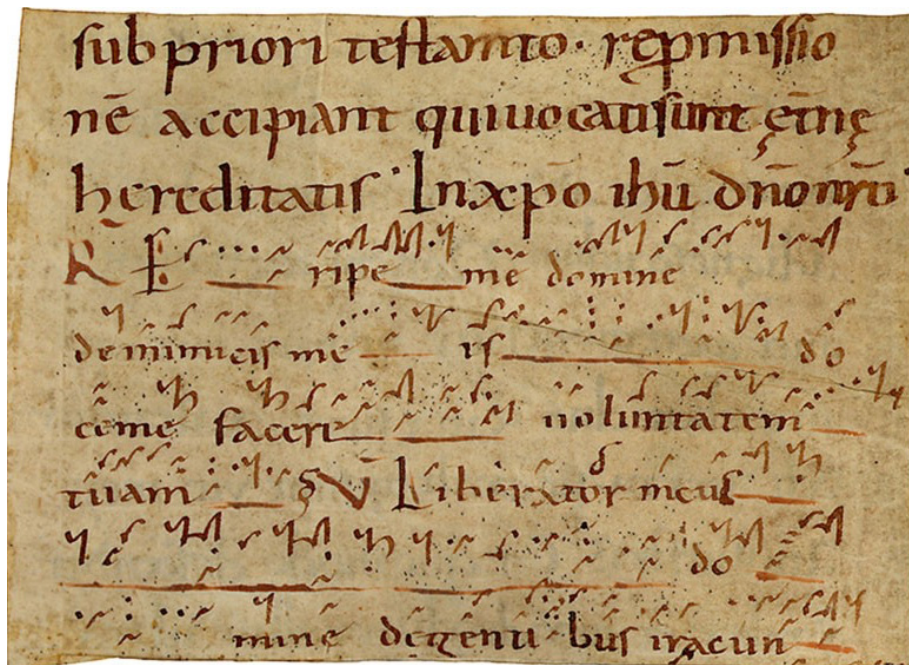 sub priori testam̅to · rep̲missio
ne̅ accipiant qui uocati sunt ęt̅nę
hereditatis · In xp̅o ih̅u dn̅o nr̅o
R̅ E ripe me domine
de inimicis me is do
ce me facere uoluntatem
tuam V̅ Liberator meus
do
mine de gentibus iracun